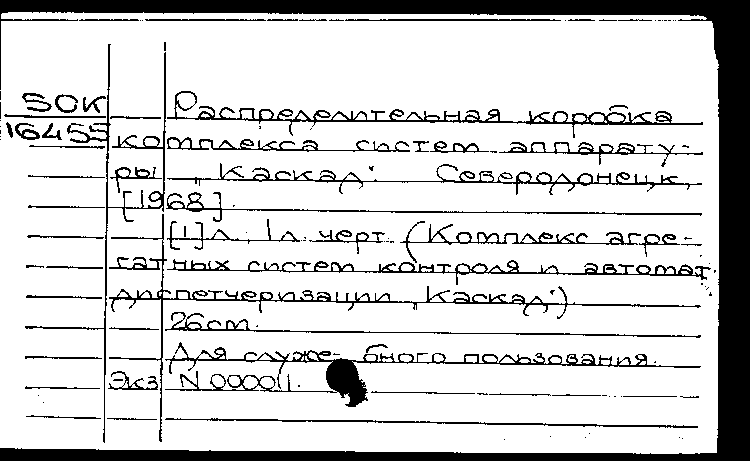 50К Распределительная коробка
16455 комплекса систем аппарату-
ры „Каскад". Северодонецк,
[1968].
[1] л, 1 л. черт. (Комплекс агре-
гатных систем контроля и автомат.
диспетчеризации „Каскад".)
26 см.
Для служебного пользования.
Экз N 00001.